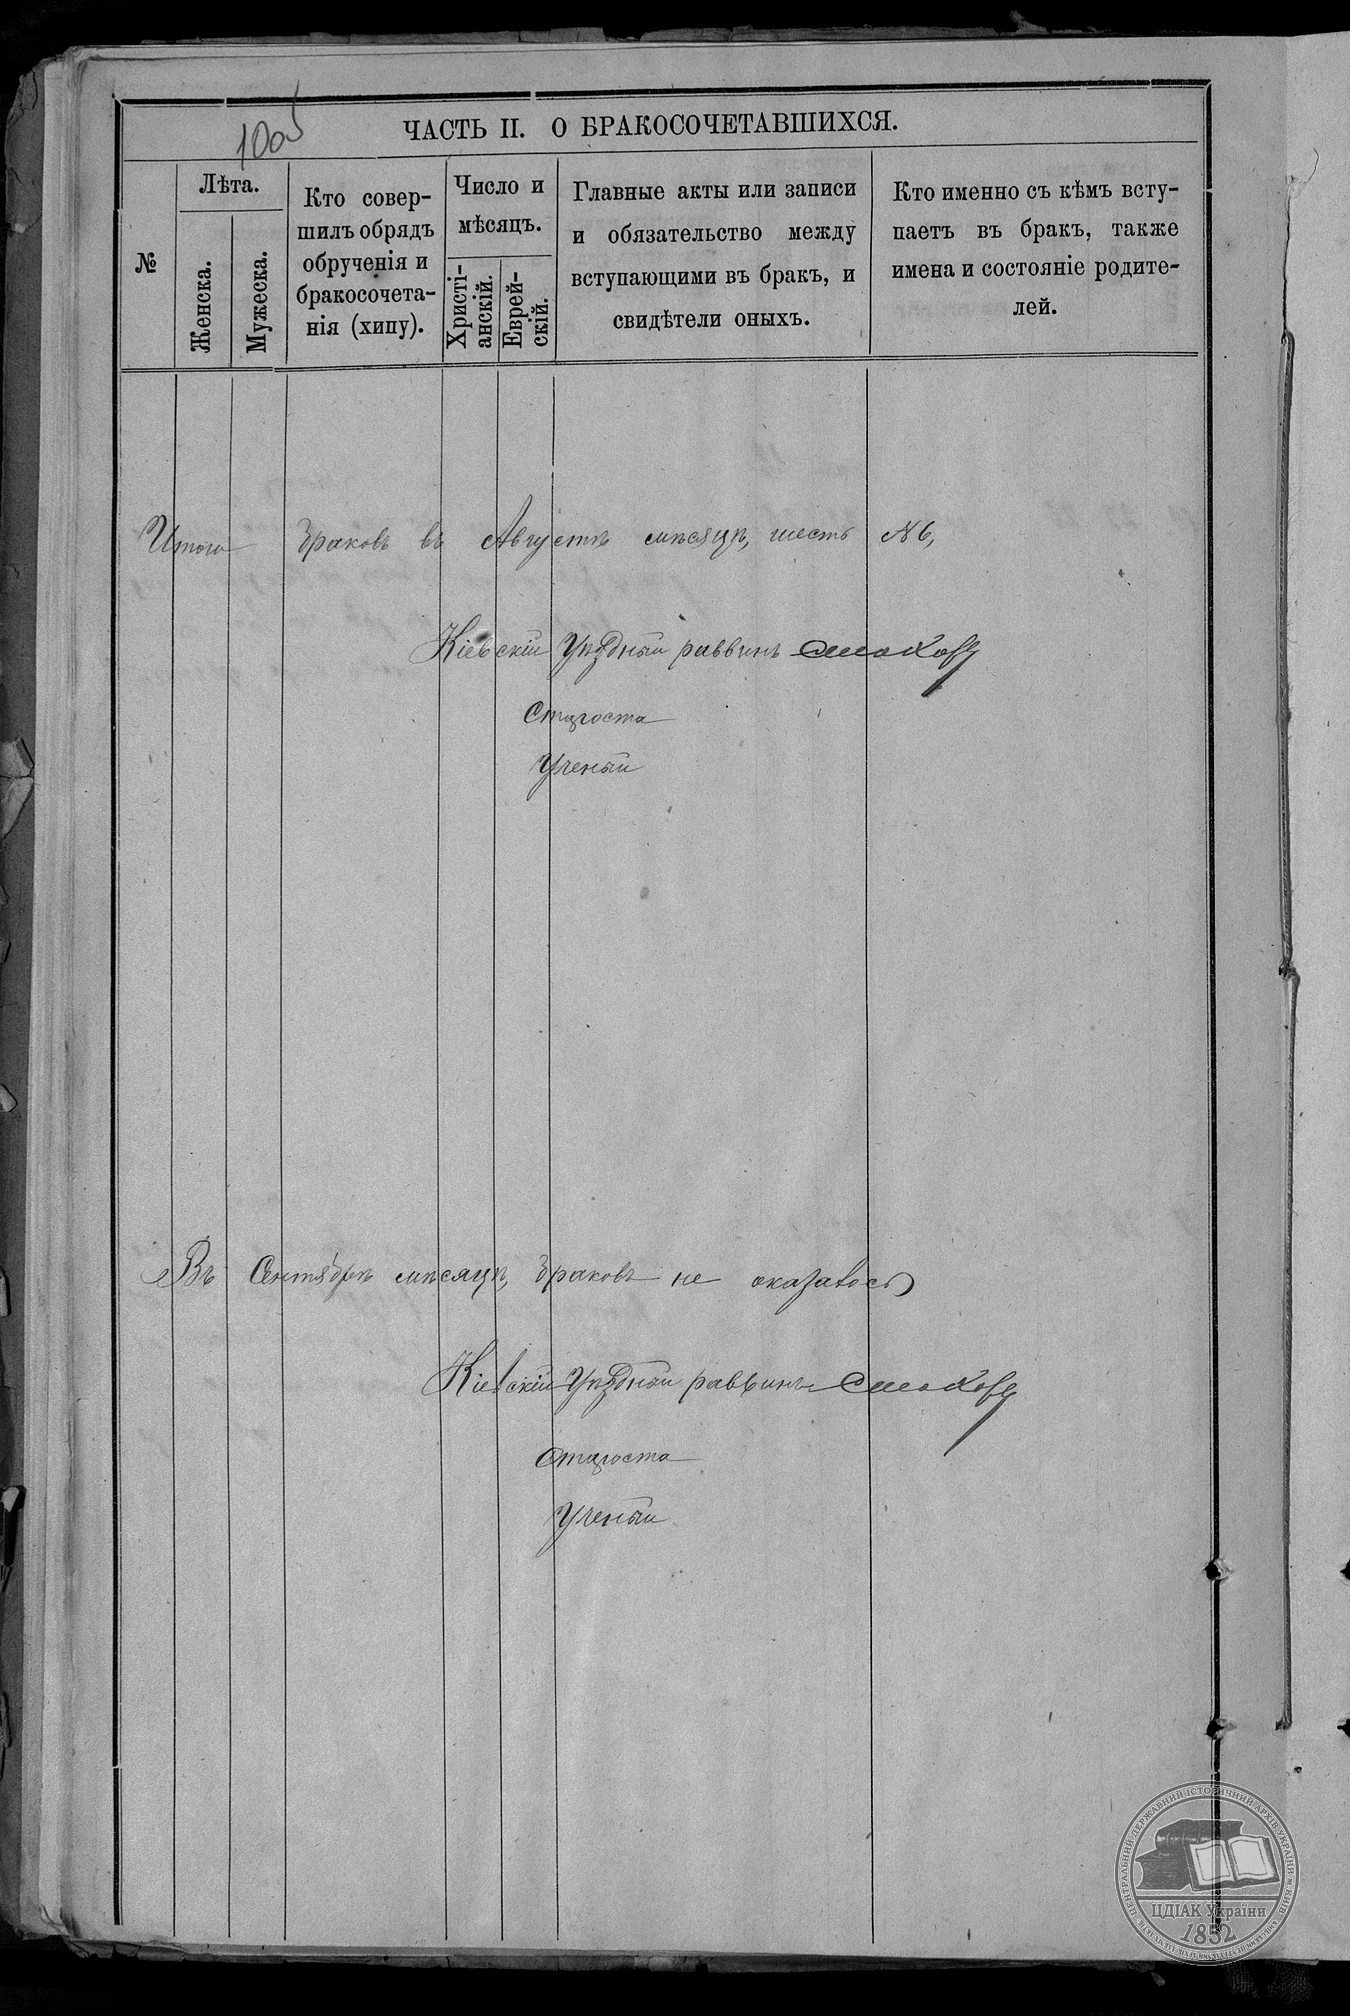 1005
ЧАСТЬ II. О БРАКОСОЧЕТАВШИХСЯ.
№
Лѣта.
Женска.
Мужеска.
Кто совер-
шилъ обрядъ
обрученія и
бракосочета-
нія (хипу).
Число и
мѣсяцъ.
Христі-
анскій.
Еврей-
скій.
Главные акты или записи
и обязательство между
вступающими въ бракъ, и
свидѣтели оныхъ.
Кто именно съ кѣмъ всту-
паетъ въ бракъ, также
имена и состояніе родите-
лей.
Итого браковъ въ Августѣ мѣсяцѣ, шесть №6,
Кіевскій Уѣздный раввинъ
Староста
Ученый
Въ Сентябрѣ мѣсяцѣ, браковъ не оказалось
Кіевскій Уѣздный раввинъ
Староста
Ученый
ЦЕНТРАЛЬНИЙ ДЕРЖАВНИЙ ІСТОРИЧНИЙ АРХІВ УКРАЇНИ м. КИЇВ
ЦДІАК України
1852